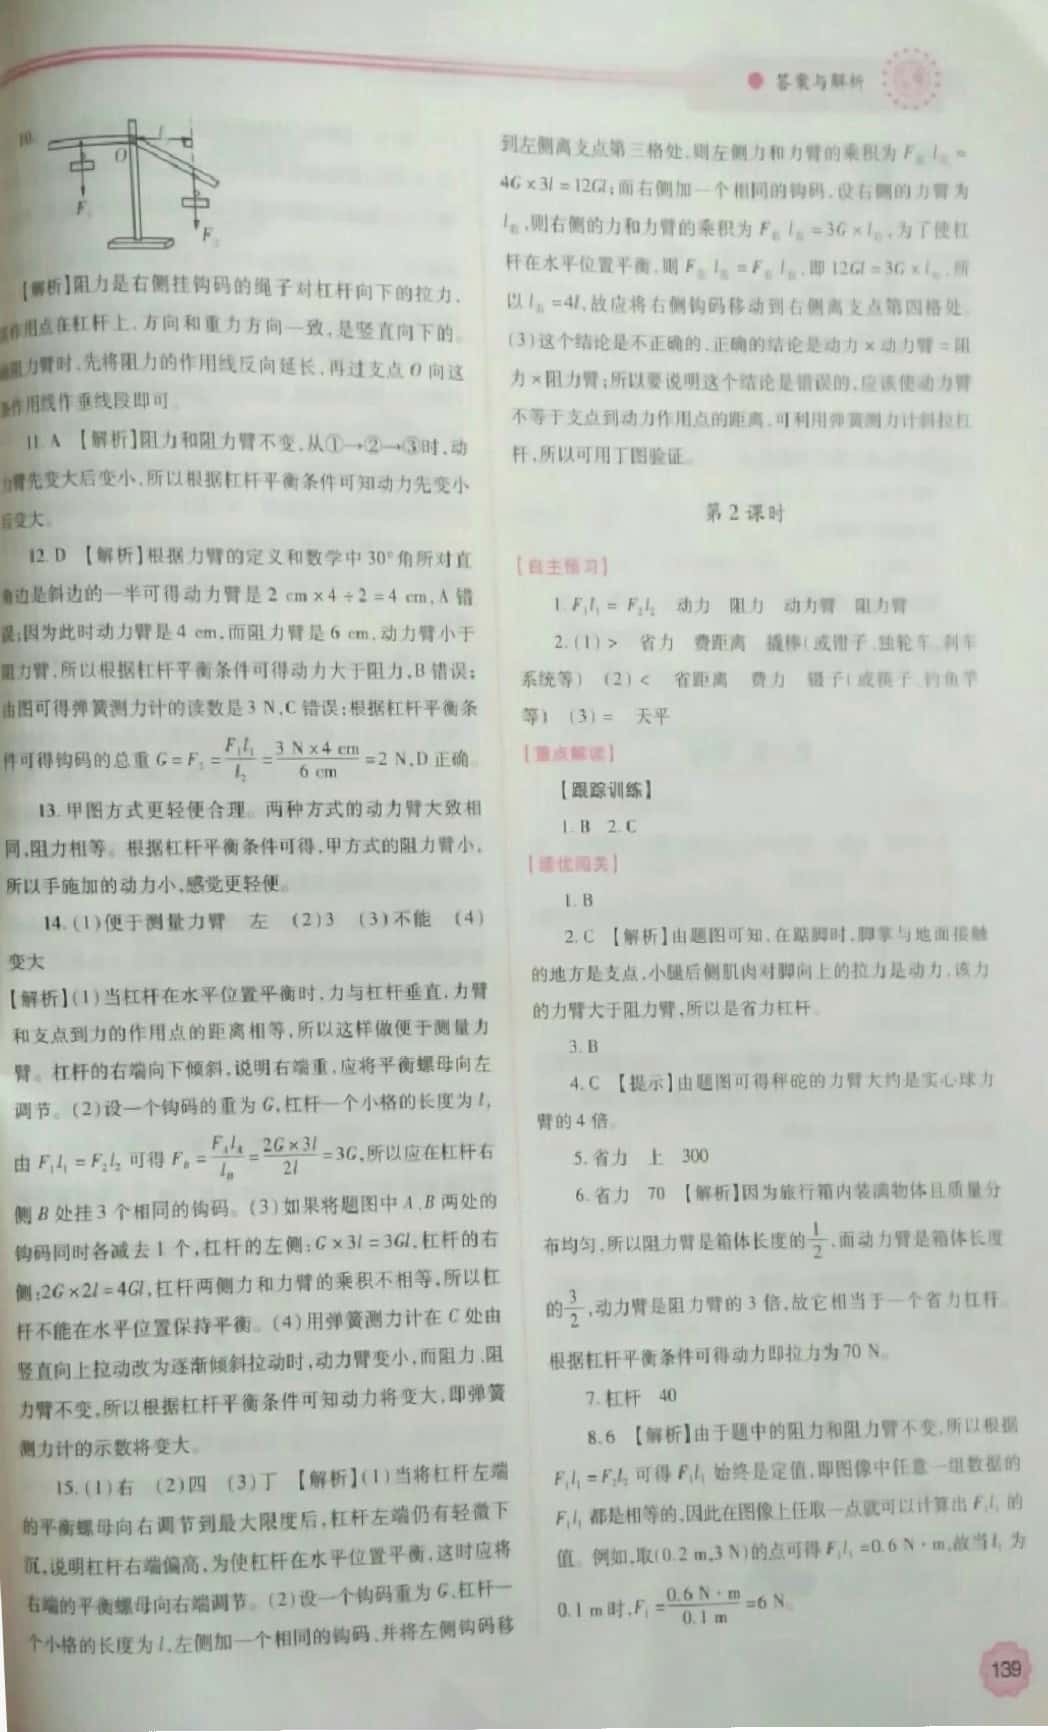 答案与解析
10.
O
l
F₁
F₂
【解析】阻力是右侧挂钩码的绳子对杠杆向下的拉力,
作用点在杠杆上,方向和重力方向一致,是竖直向下的。
阻力臂时,先将阻力的作用线反向延长,再过支点 O 向这
条作用线作垂线段即可
11. A 【解析】阻力和阻力臂不变,从①→②→③时,动
力臂先变大后变小,所以根据杠杆平衡条件可知动力先变小
后变大。
12. D 【解析】根据力臂的定义和数学中 30°角所对直
角边是斜边的一半可得动力臂是 2 cm×4÷2=4 cm,A 错
误;因为此时动力臂是 4 cm,而阻力臂是 6 cm,动力臂小于
阻力臂,所以根据杠杆平衡条件可得动力大于阻力,B 错误;
由图可得弹簧测力计的读数是 3 N,C 错误;根据杠杆平衡条
件可得钩码的总重 G=F₂=F₁l₁/l₂=3 N×4 cm/6 cm=2 N,D 正确。
13. 甲图方式更轻便合理。两种方式的动力臂大致相
同,阻力相等。根据杠杆平衡条件可得,甲方式的阻力臂小,
所以手施加的动力小,感觉更轻便。
14. (1)便于测量力臂 左 (2)3 (3)不能 (4)
变大
【解析】(1)当杠杆在水平位置平衡时,力与杠杆垂直,力臂
和支点到力的作用点的距离相等,所以这样做便于测量力
臂。杠杆的右端向下倾斜,说明右端重,应将平衡螺母向左
调节。(2)设一个钩码的重为 G,杠杆一个小格的长度为 l,
由 F₁l₁=F₂l₂ 可得 F_B=F_A l_A/l_B=2G×3l/2l=3G,所以应在杠杆右
侧 B 处挂 3 个相同的钩码。(3)如果将题图中 A、B 两处的
钩码同时各减去 1 个,杠杆的左侧:G×3l=3Gl,杠杆的右
侧:2G×2l=4Gl,杠杆两侧力和力臂的乘积不相等,所以杠
杆不能在水平位置保持平衡。(4)用弹簧测力计在 C 处由
竖直向上拉动改为逐渐倾斜拉动时,动力臂变小,而阻力、阻
力臂不变,所以根据杠杆平衡条件可知动力将变大,即弹簧
测力计的示数将变大。
15. (1)右 (2)四 (3)丁 【解析】(1)当将杠杆左端
的平衡螺母向右调节到最大限度后,杠杆左端仍有轻微下
沉,说明杠杆右端偏高,为使杠杆在水平位置平衡,这时应将
右端的平衡螺母向右端调节。(2)设一个钩码重为 G,杠杆一
个小格的长度为 l,左侧加一个相同的钩码,并将左侧钩码移
到左侧离支点第三格处,则左侧力和力臂的乘积为 F左l左=
4G×3l=12Gl;而右侧加一个相同的钩码,设右侧的力臂为
l右,则右侧的力和力臂的乘积为 F右l右=3G×l右,为了使杠
杆在水平位置平衡,则 F左l左=F右l右,即 12Gl=3G×l右,所
以 l右=4l,故应将右侧钩码移动到右侧离支点第四格处
(3)这个结论是不正确的,正确的结论是动力×动力臂=阻
力×阻力臂;所以要说明这个结论是错误的,应该使动力臂
不等于支点到动力作用点的距离,可利用弹簧测力计斜拉杠
杆,所以可用丁图验证。
第 2 课时
【自主预习】
1. F₁l₁=F₂l₂ 动力 阻力 动力臂 阻力臂
2. (1)> 省力 费距离 撬棒(或钳子、独轮车、刹车
系统等) (2)< 省距离 费力 镊子(或筷子、钓鱼竿
等) (3)= 天平
【重点解读】
【跟踪训练】
1. B 2. C
【速优闯关】
1. B
2. C 【解析】由题图可知,在踮脚时,脚掌与地面接触
的地方是支点,小腿后侧肌肉对脚向上的拉力是动力,该力
的力臂大于阻力臂,所以是省力杠杆。
3. B
4. C 【提示】由题图可得秤砣的力臂大约是实心球力
臂的 4 倍。
5. 省力 上 300
6. 省力 70 【解析】因为旅行箱内装满物体且质量分
布均匀,所以阻力臂是箱体长度的1/2,而动力臂是箱体长度
的3/2,动力臂是阻力臂的 3 倍,故它相当于一个省力杠杆。
根据杠杆平衡条件可得动力即拉力为 70 N。
7. 杠杆 40
8. 6 【解析】由于题中的阻力和阻力臂不变,所以根据
F₁l₁=F₂l₂ 可得 F₁l₁ 始终是定值,即图像中任意一组数据的
F₁l₁ 都是相等的,因此在图像上任取一点就可以计算出 F₁l₁ 的
值。例如,取(0.2 m,3 N)的点可得 F₁l₁=0.6 N·m,故当 l₁ 为
0.1 m 时,F₁=0.6 N·m/0.1 m=6 N。
139